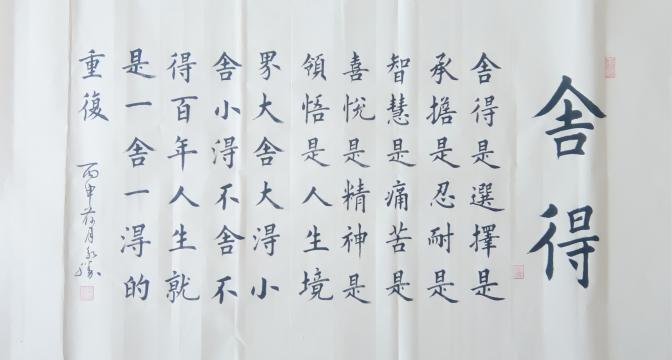 舍得
舍得是選擇是
承擔是忍耐是
智慧是痛苦是
喜悅是精神是
領悟是人生境
界大舍大得小
舍小得不舍不
得百年人生就
是一舍一得的
重復
丙申